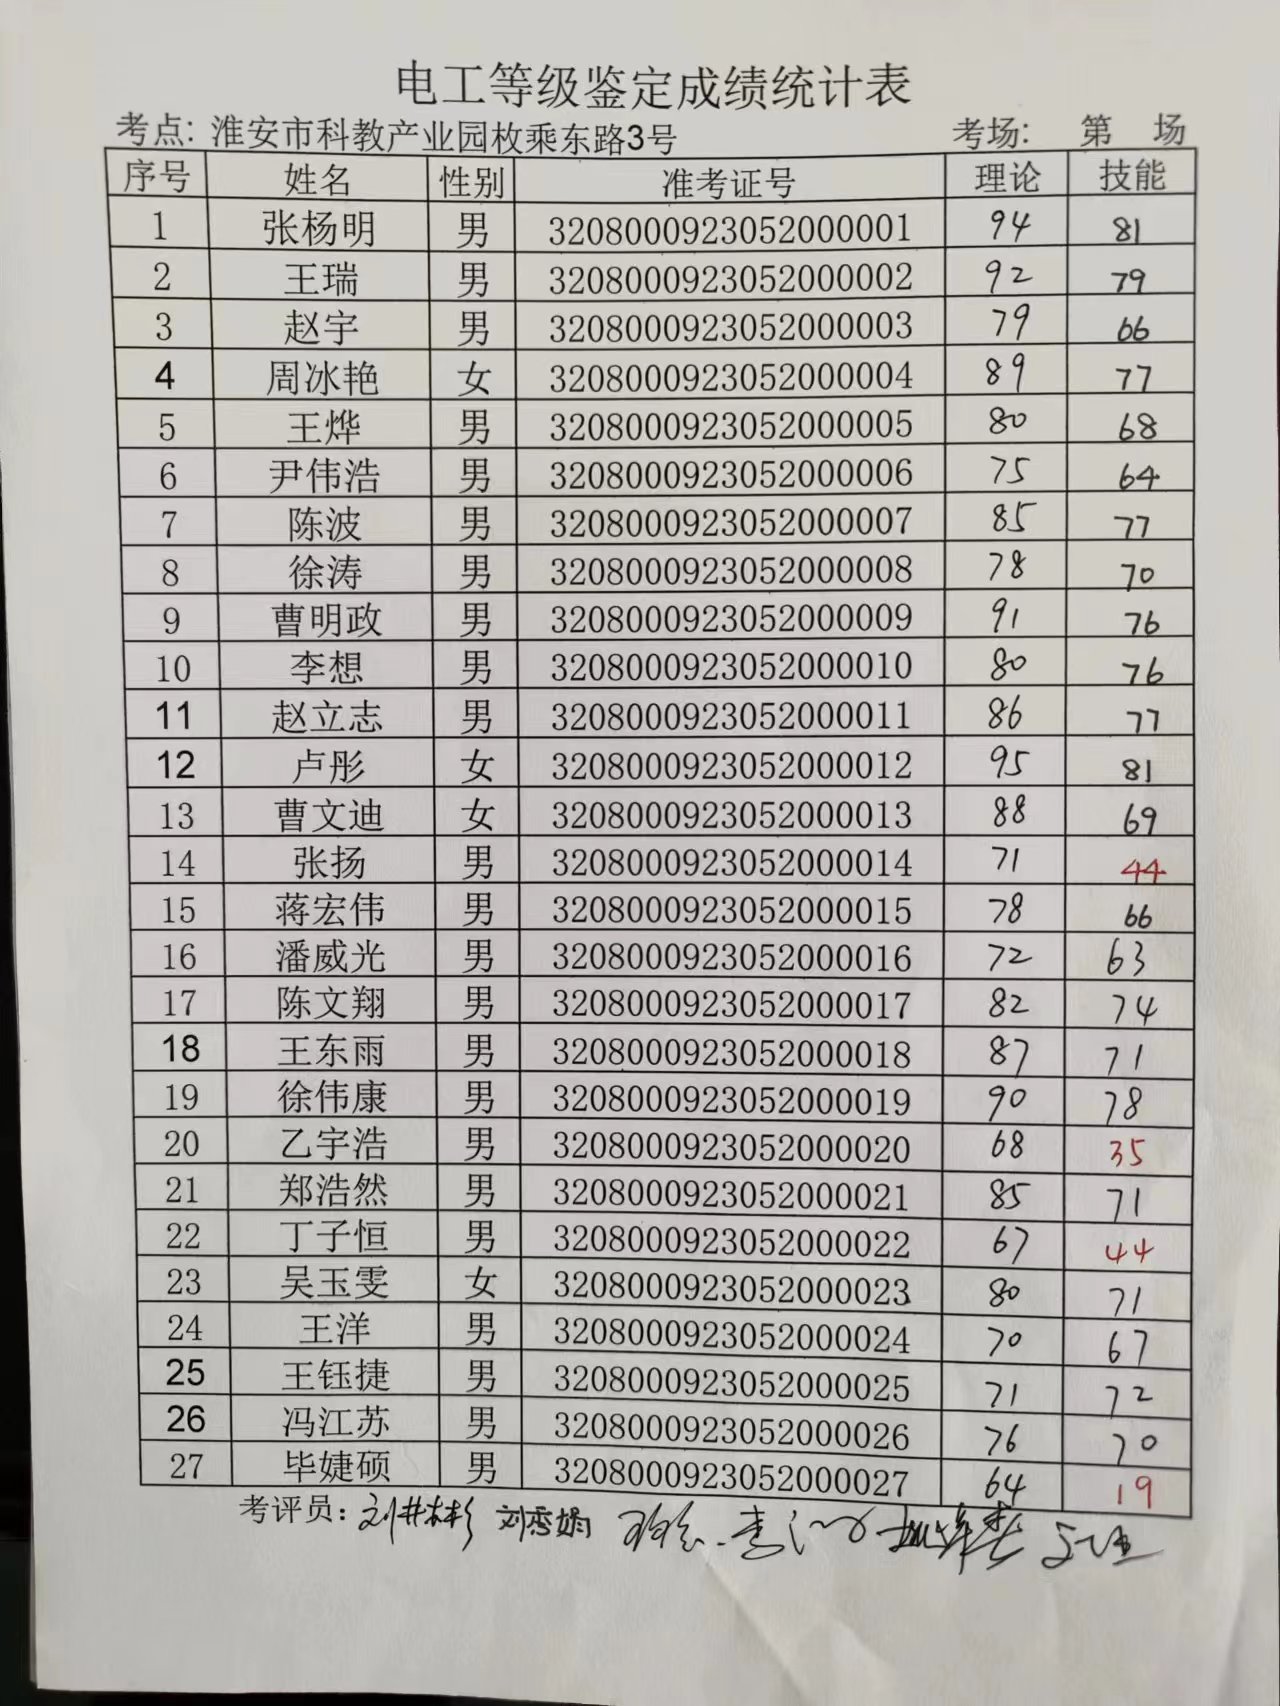 电工等级鉴定成绩统计表
考点: 淮安市科教产业园枚乘东路3号 考场: 第 场
序号 姓名 性别 准考证号 理论 技能
1 张杨明 男 3208000923052000001 94 81
2 王瑞 男 3208000923052000002 92 79
3 赵宇 男 3208000923052000003 79 66
4 周冰艳 女 3208000923052000004 89 77
5 王烨 男 3208000923052000005 80 68
6 尹伟浩 男 3208000923052000006 75 64
7 陈波 男 3208000923052000007 85 77
8 徐涛 男 3208000923052000008 78 70
9 曹明政 男 3208000923052000009 91 76
10 李想 男 3208000923052000010 80 76
11 赵立志 男 3208000923052000011 86 77
12 卢彤 女 3208000923052000012 95 81
13 曹文迪 女 3208000923052000013 88 69
14 张扬 男 3208000923052000014 71 44
15 蒋宏伟 男 3208000923052000015 78 66
16 潘威光 男 3208000923052000016 72 63
17 陈文翔 男 3208000923052000017 82 74
18 王东雨 男 3208000923052000018 87 71
19 徐伟康 男 3208000923052000019 90 78
20 乙宇浩 男 3208000923052000020 68 35
21 郑浩然 男 3208000923052000021 85 71
22 丁子恒 男 3208000923052000022 67 44
23 吴玉雯 女 3208000923052000023 80 71
24 王洋 男 3208000923052000024 70 67
25 王钰捷 男 3208000923052000025 71 72
26 冯江苏 男 3208000923052000026 76 70
27 毕婕硕 男 3208000923052000027 64 19
考评员: 刘秀娟